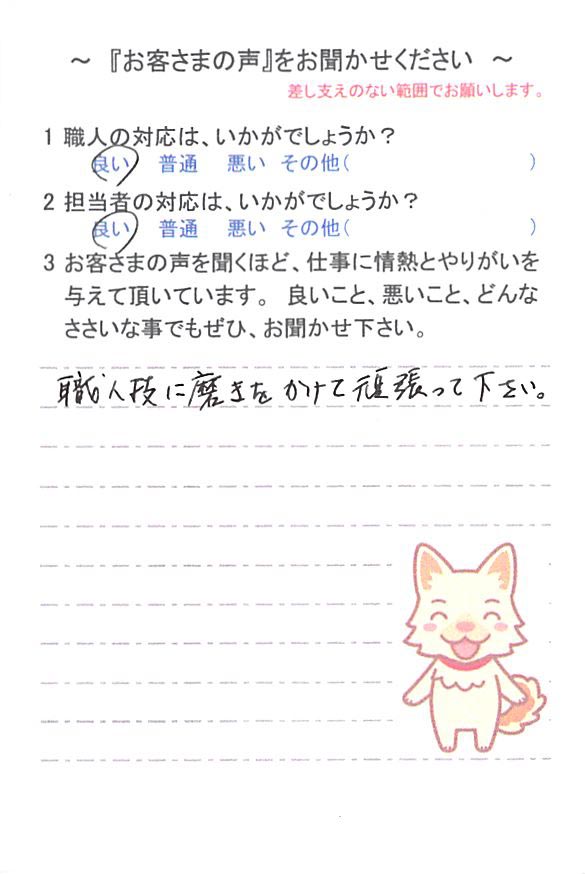 ～ 『お客さまの声』をお聞かせください ～
差し支えのない範囲でお願いします。
1 職人の対応は、いかがでしょうか？
良い 普通 悪い その他( )
2 担当者の対応は、いかがでしょうか？
良い 普通 悪い その他( )
3 お客さまの声を聞くほど、仕事に情熱とやりがいを
与えて頂いています。 良いこと、悪いこと、どんな
ささいな事でもぜひ、お聞かせ下さい。
職人技に磨きをかけて頑張って下さい。